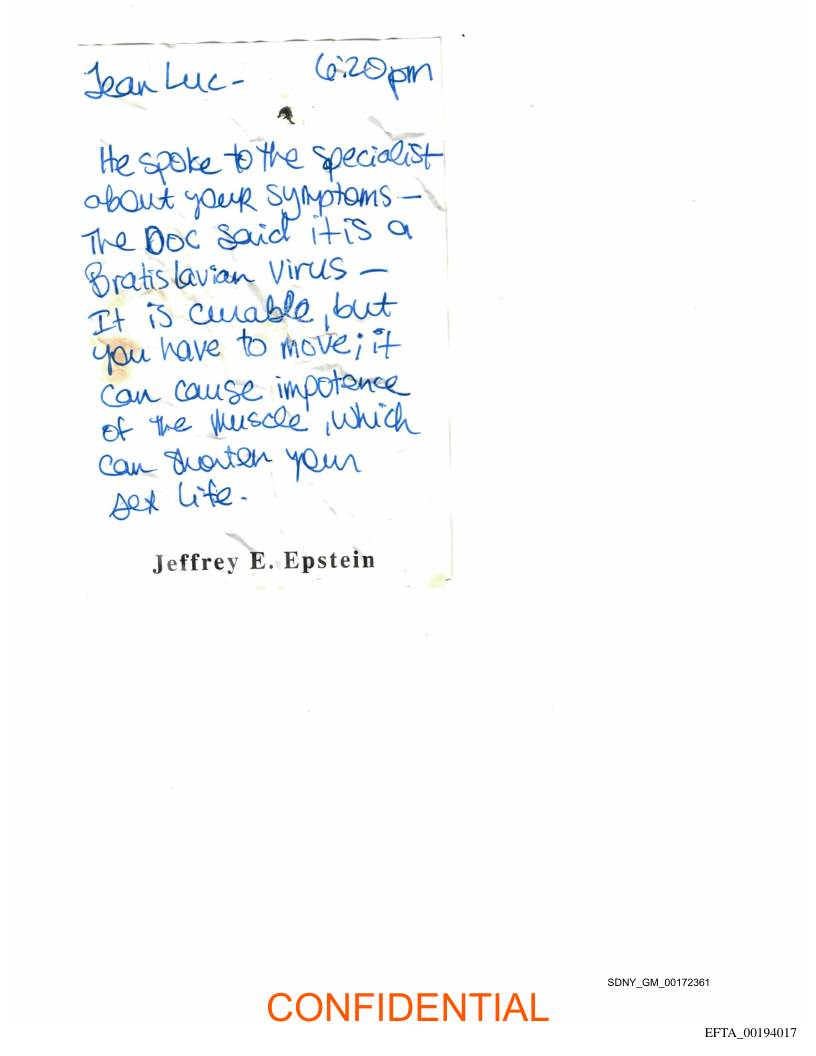 Jean Luc - 6:20pm
He spoke to the specialist
about your symptoms -
The Doc said it is a
Bratislavian virus -
It is curable, but
you have to move; it
can cause impotence
of the muscle, which
can shorten your
sex life.
Jeffrey E. Epstein
SDNY_GM_00172361
CONFIDENTIAL
EFTA_00194017